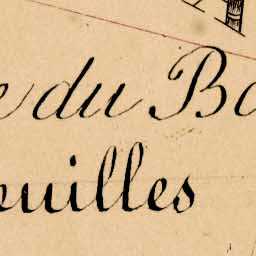 e du Bo
ouilles